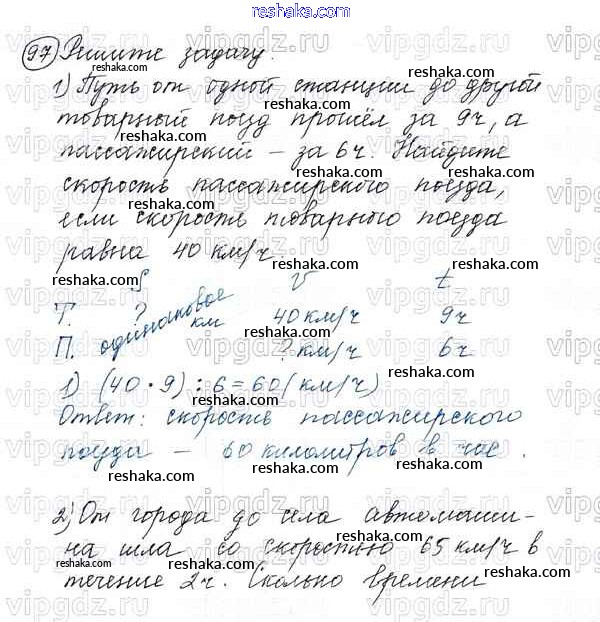 reshaka.com
97 Решите задачу.
1) Путь от одной станции до другой
товарный поезд прошёл за 9ч, а
пассажирский – за 6ч. Найдите
скорость пассажирского поезда,
если скорость товарного поезда
равна 40 км/ч.
S V t
Т. ? одинаковое км 40 км/ч 9ч
П. ? км/ч 6ч
1) (40 · 9) : 6 = 60 (км/ч)
Ответ: скорость пассажирского
поезда – 60 километров в час.
2) От города до села автомаши-
на шла со скоростью 65 км/ч в
течение 2ч. Сколько времени